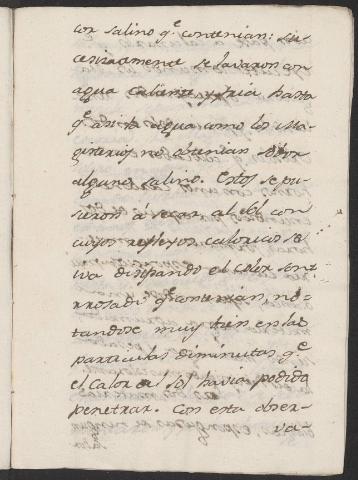 cor salino q.e contenian: suc
cesivamente se lavaron con
agua caliente, y fria hasta
q.e asi la agua como los Ma-
gisterios no obtenian olor
alguno salino. Estos se pu-
sieron á secar al sol con
cuyos reflexos caloricos se
iva disipando el color
q.e contenian, no-
tandose muy bien en las
particulas diminutas q.e
el Calor del sol havia podido
penetrar. Con esta obser-
va-